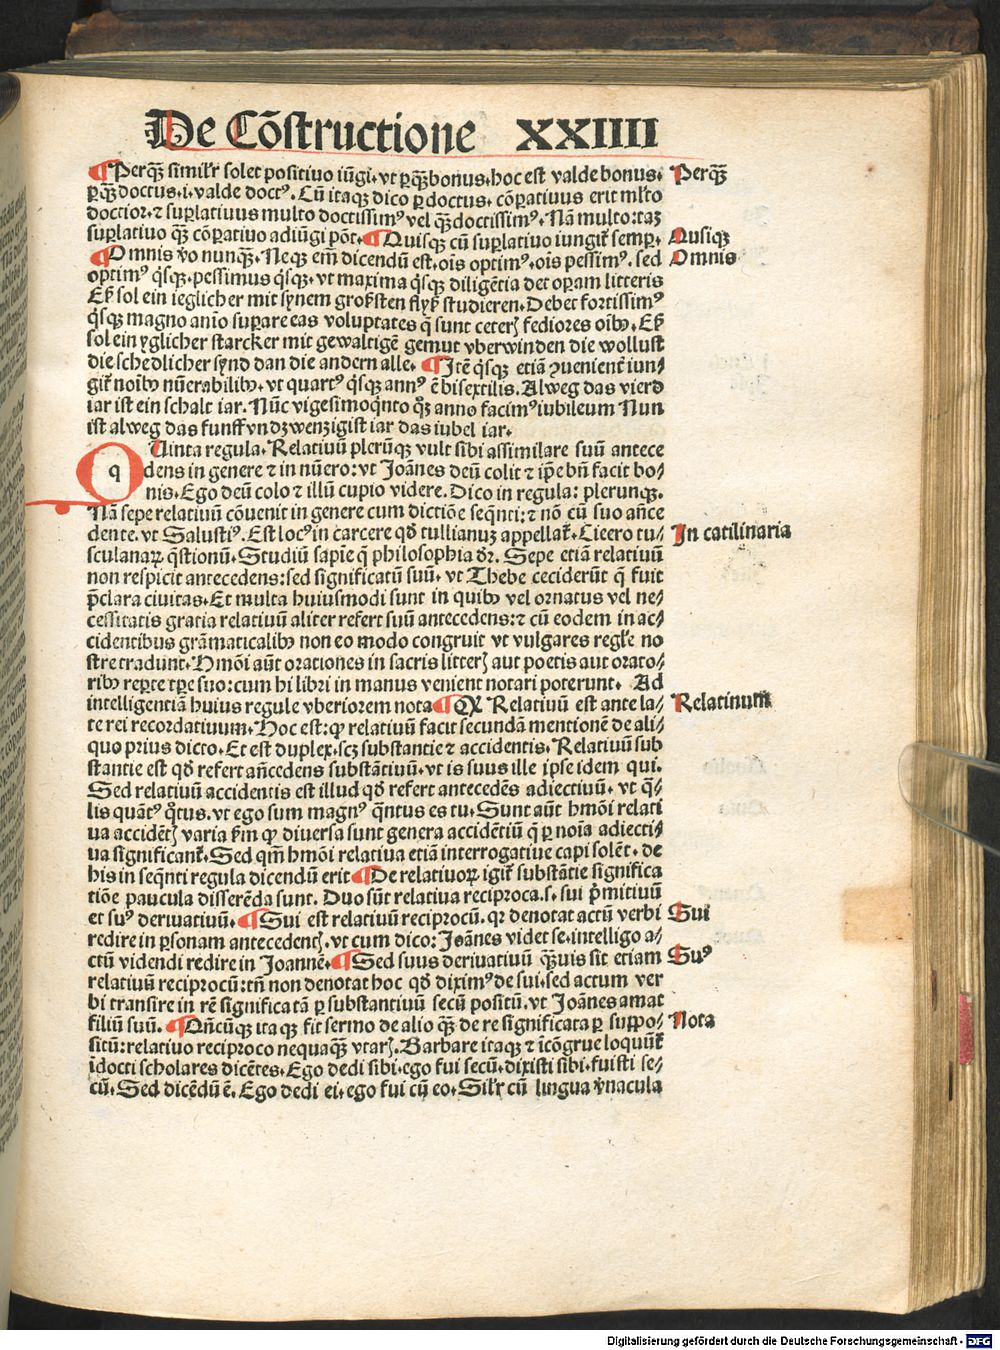 De Cōstructione XXIIII
¶Perq̄ꝫ simil'r solet positiuo iūgi. vt ꝑq̄ꝫbonus. hoc est valde bonus. Perq̄ꝫ
ꝑq̄ꝫ doctus. i. valde doctꝰ. Cū itaqꝫ dico ꝑ doctus. cōꝑatiuus erit ml'to
doctior. ⁊ suꝑlatiuus multo doctissimꝰ vel q̄ꝫ doctissimꝰ. Nā multo: taꝫ
suꝑlatiuo q̄ꝫ cōꝑatiuo adiūgi pōt. ¶Quisqꝫ cū suꝑlatiuo iungit᷑ semꝑ. Qusiqꝫ
¶Omnis v̄o nunqꝫ. Neqꝫ em̄ dicendū est. oīs optimꝰ. oīs pessimꝰ. sed Omnis
optimꝰ q̇sqꝫ. pessimus q̇sqꝫ. vt maxima q̇sqꝫ diligētia det oꝑam litteris
Eß sol ein ieglicher mit synem großsten flyß studieren. Debet fortissimꝰ
q̇sqꝫ magno anīo suꝑare eas voluptates q̄ sunt ceterꝭ fediores oībꝫ. Eß
sol ein yglicher starcker mit gewaltigē gemut vberwinden die wollust
die schedlicher synd dan die andern alle. ¶Itē q̇sqꝫ etiā ꝯuenient᷑ iun⸗
git᷑ noībꝫ nūerabilibꝫ. vt quartꝰ q̇sqꝫ annꝰ ē bisextilis. Alweg das vierd
iar ist ein schalt iar. Nūc vigesimoqͥnto qͦꝫ anno facimꝰ iubileum Nun
ist alweg das funff vnd zwenzigist iar das iubel iar.
Quinta regula. Relatiuū plerūqꝫ vult sibi assimilare suū antece
dens in genere ⁊ in nūero: vt Ioānes deū colit ⁊ ip̄e bn̄ facit bo⸗
nis. Ego deū colo ⁊ illū cupio videre. Dico in regula: plerunqꝫ.
Nā sepe relatiuū cōuenit in genere cum dictiōe seq̄nti: ⁊ nō cū suo añce
dente. vt Salustiꝰ. Est locꝰ in carcere qd̄ tullianuꝫ appellat᷑. Cicero tu⸗ In catilinaria
sculanaꝝ q̄stionū. Studiū sapīe q̄ philosophia dr̄. Sepe etiā relatiuū
non respicit antecedens: sed significatū suū. vt Thebe ceciderūt q̄ fuit
p̄clara ciuitas. Et multa huiusmodi sunt in quibꝫ vel ornatus vel ne⸗
cessitatis gratia relatiuū aliter refert suū antecedens: ⁊ cū eodem in ac⸗
cidentibus grāmaticalibꝫ non eo modo congruit vt vulgares regl'e no
stre tradunt. Hmōi aūt orationes in sacris litterꝭ aut poetis aut orato⸗
ribꝫ reꝑte tꝑe suo: cum hi libri in manus venient notari poterunt. Ad
intelligentiam huius regule vberiorem nota ¶Qꝙ Relatiuū est ante la⸗ Relatiuum
te rei recordatiuum. Hoc est: ꝙ relatiuū facit secundā mentionē de ali⸗
quo prius dicto. Et est duplex. scꝫ substantie ⁊ accidentis. Relatiuū sub
stantie est qd̄ refert añcedens substātiuū. vt is suus ille ipse idem qui.
Sed relatiuū accidentis est illud qd̄ refert antecedēs adiectiuū. vt q̄⸗
lis quātꝰ qͦtus. vt ego sum magnꝰ q̄ntus es tu. Sunt aūt hmōi relati
ua accidētꝭ varia ẜm ꝙ diuersa sunt genera accidētiū q̄ ꝑ noīa adiecti⸗
ua significant᷑. Sed qm̄ hmōi relatiua etiā interrogatiue capi solēt. de
his in seq̄nti regula dicendū erit ¶De relatiuoꝝ igit᷑ substātie significa
tiōe paucula disserēda sunt. Duo sūt relatiua reciproca. s. sui p̄mitiuū
et suꝰ deriuatiuū. ¶Sui est relatiuū reciprocū. qꝛ denotat actū verbi Sui
redire in ꝑsonam antecedentꝭ. vt cum dico: Ioānes videt se. intelligo a⸗
ctū videndi redire in Ioannē. ¶Sed suus deriuatiuū q̄ꝫuis sit etiam Suꝰ
relatiuū reciprocū: tn̄ non denotat hoc qd̄ diximꝰ de sui. sed actum ver
bi transire in rē significatā ꝑ substantiuū secū positū. vt Ioānes amat
filiū suū. ¶Qn̄cūqꝫ ita qꝫ fit sermo de alio q̄ꝫ de re significata ꝑ suppo⸗ Nota
sitū: relatiuo reciproco nequaq̄ꝫ vtarꝭ. Barbare itaqꝫ ⁊ īcōgrue loquūt᷑
īdocti scholares dicētes. Ego dedi sibi. ego fui secū. dixisti sibi. fuisti se⸗
cū. Sed dicēdū ē. Ego dedi ei. ego fui cū eo. Sil'r cū lingua v̄nacula
Digitalisierung gefördert durch die Deutsche Forschungsgemeinschaft - DFG